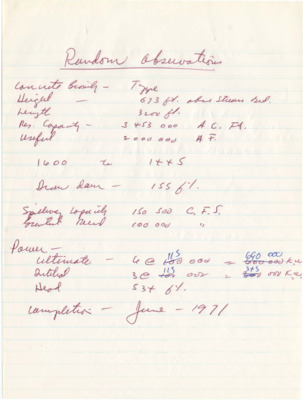 Random Observations
Concrete Gravity - Type
Height - 673 ft. above stream bed.
Length 3200 ft.
Res. Capacity - 3 453 000 A.C. Ft.
Useful 2 000 000 A.F.
1600 1445
Draw down - 155 ft.
Spillway Capacity 150 500 C.F.S.
100 000 "
Power -
Ultimate - 6 @ 115 000 = 690 000 K.W.
Initial 3 @ 115 000 = 345 000 K.W.
Head 534 ft.
Completion - June - 1971